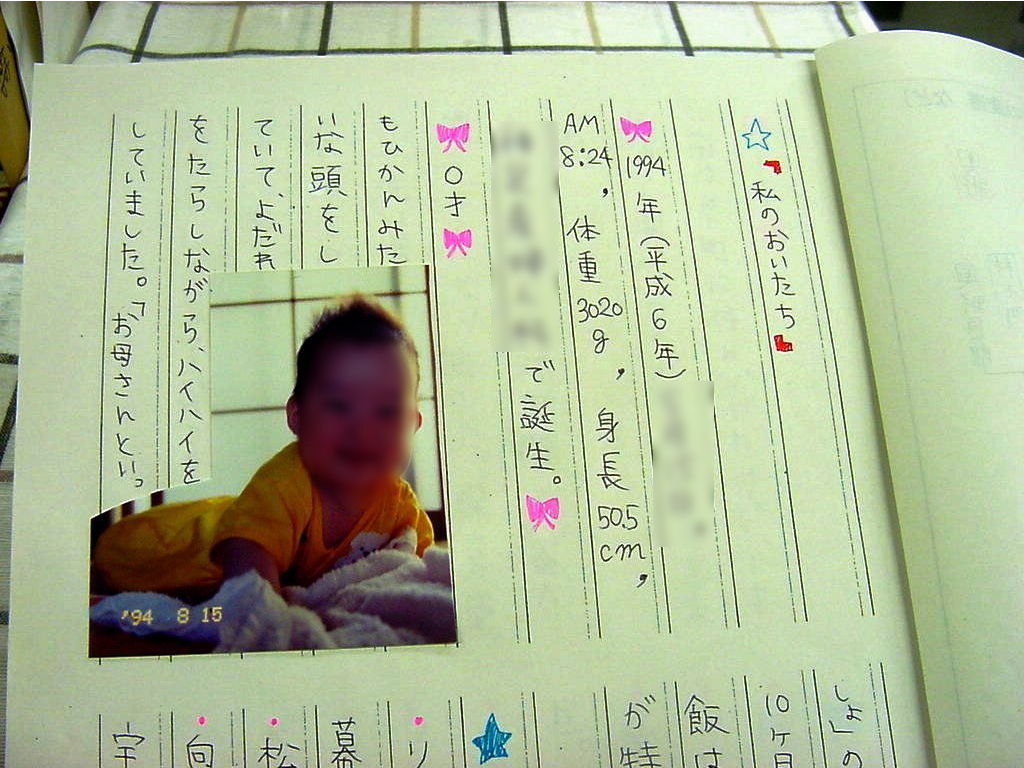 私のおいたち
1994年(平成6年)
AM 8:24, 体重3020g, 身長50.5cm,
で誕生。
0才
もひかんみた
いな頭をし
ていて、よだれ
をたらしながら、ハイハイを
していました。「お母さんといっ
'94 8 15
しょ」の
10ヶ月
飯は
が
リ
幕
松
向
宇